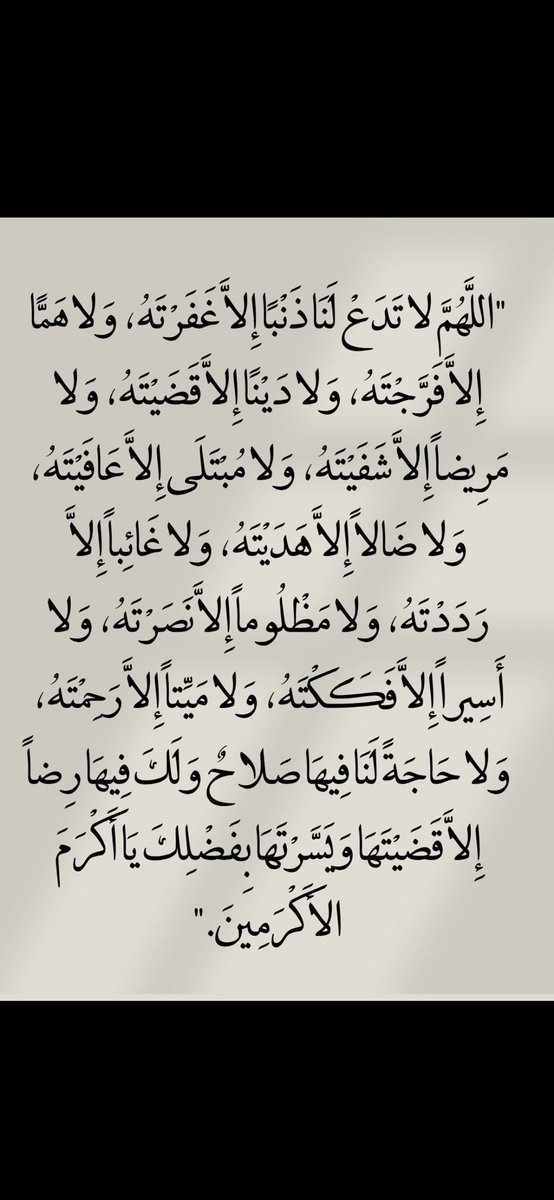 "اللَّهُمَّ لا تَدَعْ لَنَا ذَنْبًا إِلاَّ غَفَرْتَهُ، وَلا هَمًّا
إِلاَّ فَرَّجْتَهُ، وَلا دَيْنًا إِلاَّ قَضَيْتَهُ، وَلا
مَرِيضاً إِلاَّ شَفَيْتَهُ، وَلا مُبْتَلَى إِلاَّ عَافَيْتَهُ،
وَلا ضَالاً إِلاَّ هَدَيْتَهُ، وَلا غَائِباً إِلاَّ
رَدَدْتَهُ، وَلا مَظْلُوماً إِلاَّ نَصَرْتَهُ، وَلا
أَسِيراً إِلاَّ فَكَكْتَهُ، وَلا مَيِّتاً إِلاَّ رَحِمْتَهُ،
وَلا حَاجَةً لَنَا فِيهَا صَلاحٌ وَلَكَ فِيهَا رِضاً
إِلاَّ قَضَيْتَهَا وَيَسَّرْتَهَا بِفَضْلِكَ يَا أَكْرَمَ
الأَكْرَمِينَ."